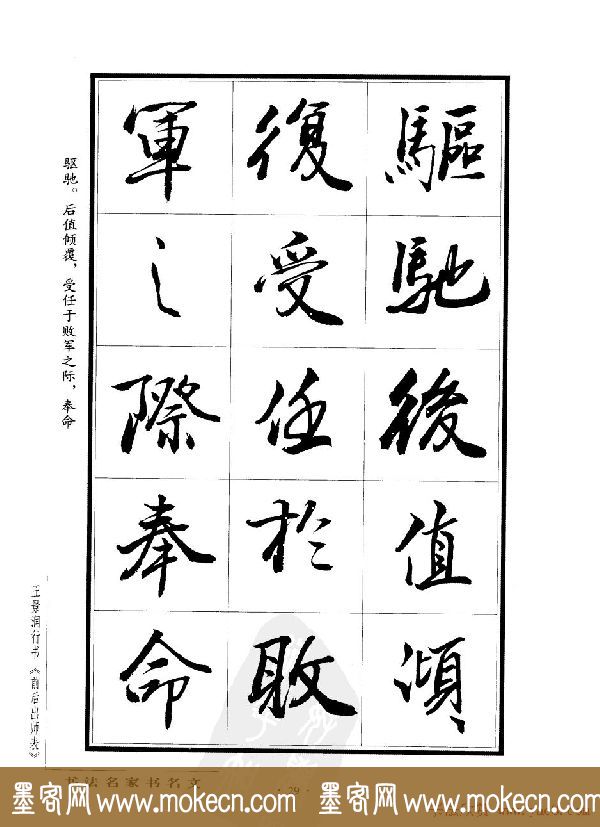 驅馳後值傾
復受任於敗
軍之際奉命
驱驰。后值倾覆，受任于败军之际，奉命
王景润行书《前后出师表》
书法名家书名文
·29·
墨客网 www.mokecn.com 墨客网 www.mokecn.com